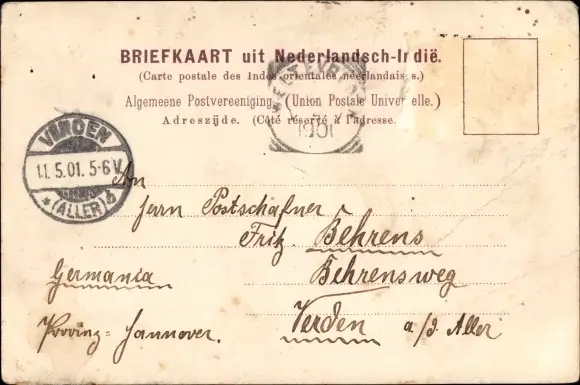 BRIEFKAART uit Nederlandsch-Indië.
(Carte postale des Indes orientales néerlandaises.)
Algemeene Postvereeniging. (Union Postale Universelle.)
Adreszijde. (Côté réservé à l'adresse.
1901
VERDEN
11.5.01. 5-6 V
* (ALLER) b
An
Herrn Postschafner
Fritz Behrens
Germania
Behrensweg
Provinz=Hannover.
Verden a/d. Aller